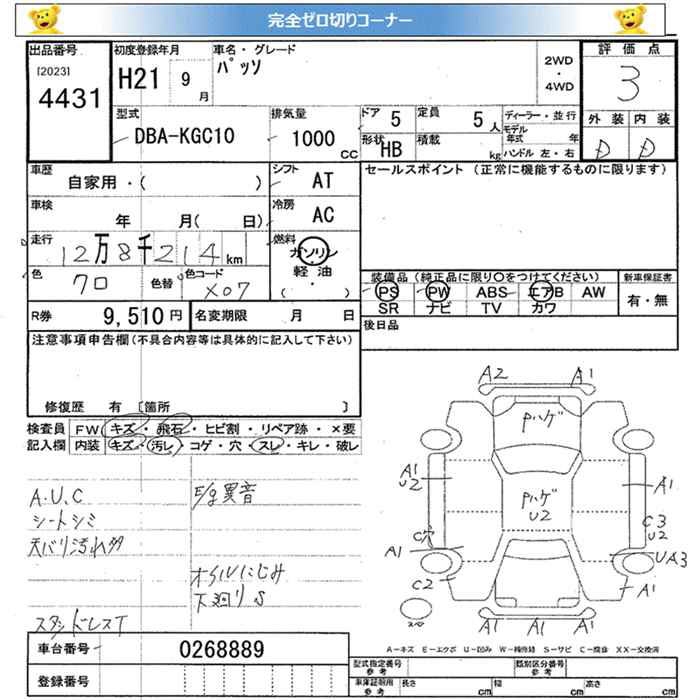 完全ゼロ切りコーナー
出品番号 初度登録年月 車名・グレード 評価点
[2023] 4431 H21 9月 パッソ 2WD・4WD 3
型式 排気量 ドア 5 定員 5人 ディーラー・並行 外装 内装
DBA-KGC10 1000CC 形状 HB 積載 kg モデル年式 年 D D
ハンドル 左・右
車歴 シフト セールスポイント (正常に機能するものに限ります)
自家用・( ) AT
車検 冷房
年 月( 日) AC
走行 燃料
12万8千214km ガソリン・軽油・( )
色 クロ 色替 色コード X07
装備品 (純正品に限り〇をつけてください) 新車保証書
PS PW ABS エアB AW 有・無
SR ナビ TV カワ
R券 9,510円 名変期限 月 日 後日品
注意事項申告欄(不具合内容等は具体的に記入して下さい)
修復歴 有 [箇所 ]
検査員記入欄 FW キズ・飛石・ヒビ割・リペア跡・×要
内装 キズ・汚レ・コゲ・穴・スレ・キレ・破レ
A.U.C E/g異音
シートシミ
天バリ汚れ多
オイルにじみ
下廻りS
スタッドレスT
A2 A1
Pハゲ
A1 U2 Pハゲ U2 A1
C穴 C3 U2
A1 UA3
C2 A1
A1 A1 A1
A-キズ E-エクボ U-凹み W-補修跡 S-サビ C-腐食 XX-交換済
車台番号 0268889
登録番号
型式指定番号 参考 類別区分番号 参考
車庫証明用 参考 長さ cm 幅 cm 高さ cm